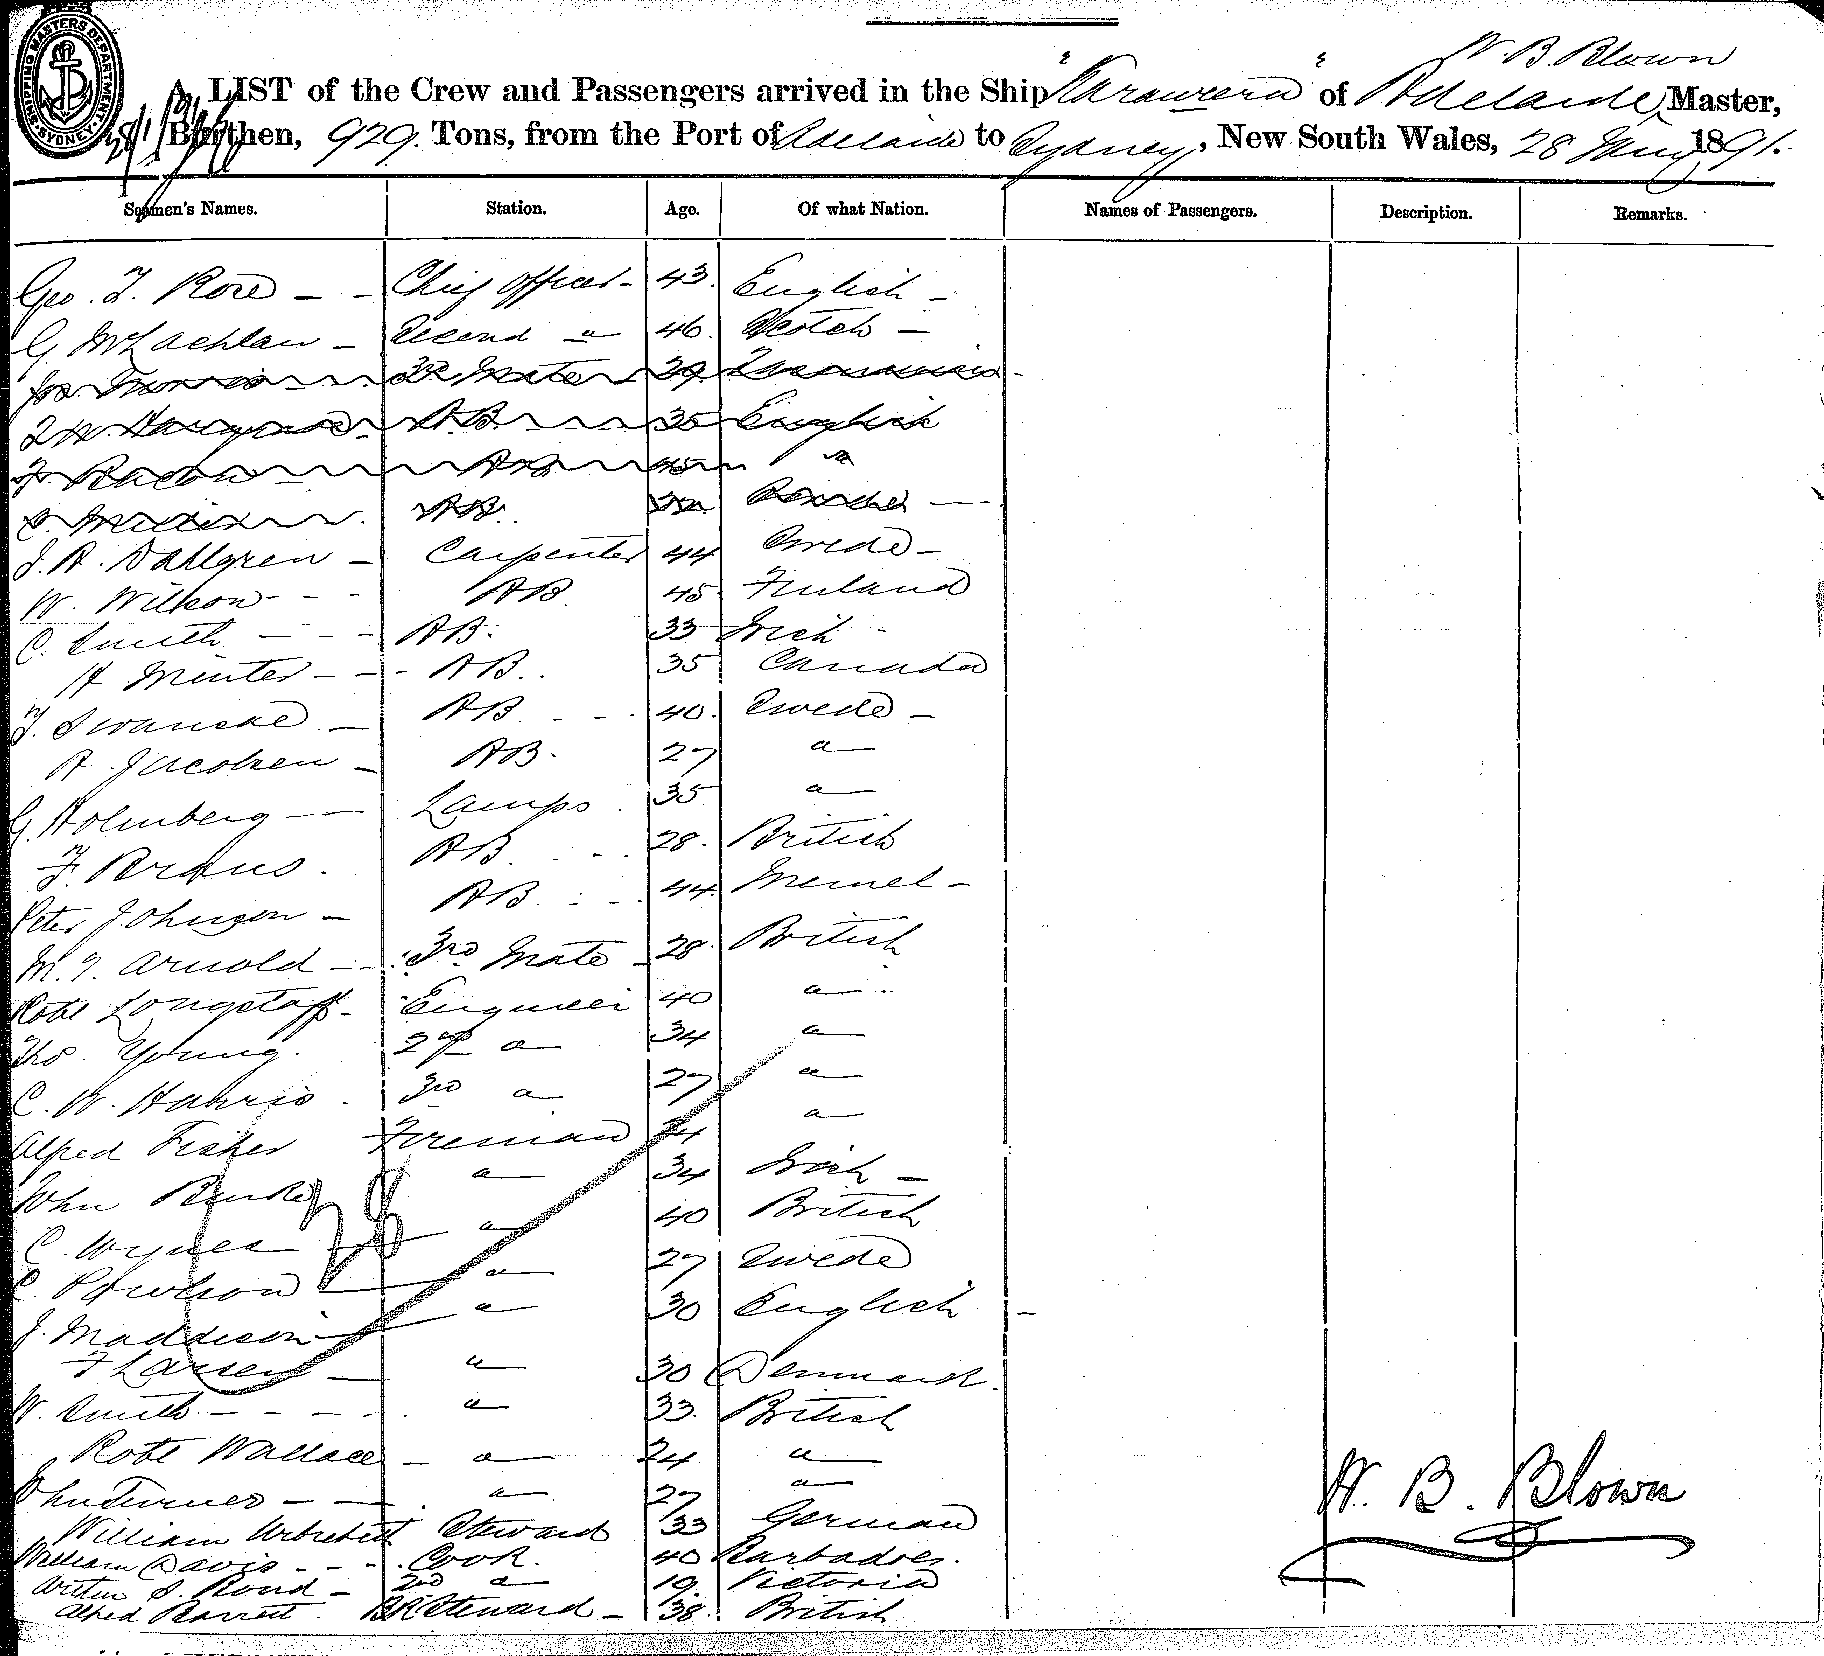 SHIPPING MASTERS DEPARTMENT SYDNEY
W. B. Blown
A LIST of the Crew and Passengers arrived in the Ship "Kraweera" of Adelaide, Master,
Burthen, 929. Tons, from the Port of Adelaide to Sydney, New South Wales, 28 1891.
Seamen's Names. Station. Age. Of what Nation. Names of Passengers. Description. Remarks.
Geo. F. Rose - - Chief Officer - 43. English -
G McLachlan - Second " 46. Scotch -
3rd Mate 29
AB. 35 English
F. Bacon AB 45 "
AB.
J. A. Dahlgren - Carpenter 44 Swede -
W. Wilson - - - AB 45 Finland
C. Smith - - - AB. 33 Irish -
H Minter - - - AB. 35 Canada
F. Swanske - AB - - 40. Swede -
A Jacobsen - AB. 27 "
G. Holmberg - - Lamps. 35 "
F. Braus. AB. - - 28. British
Peter Johnson - AB. - - 44. Memel -
M. J. Arnold - - 3rd Mate - 28. British
Robt Longstaff - Engineer 40 "
Tho. Young. 2nd " 34 "
C. W. Harris. 3rd " 27 "
Alfred Fisher Fireman 24 "
John Burke " 34 Irish -
C. Wynes " 40 British
C. Pawlson " 27 Swede
J. Maddison " 30 English -
F Larsen - " 30 Denmark.
W. Smith - - - - " 33. British
Robt Wallace - " 24 "
John Turner - - " 27 "
William Steward 33 German
William Davis - - - Cook. 40 Barbadoes.
S. Rond - 2nd " 19. Victoria
Alfred Barrett. BK Steward - 38. British
W. B. Blown